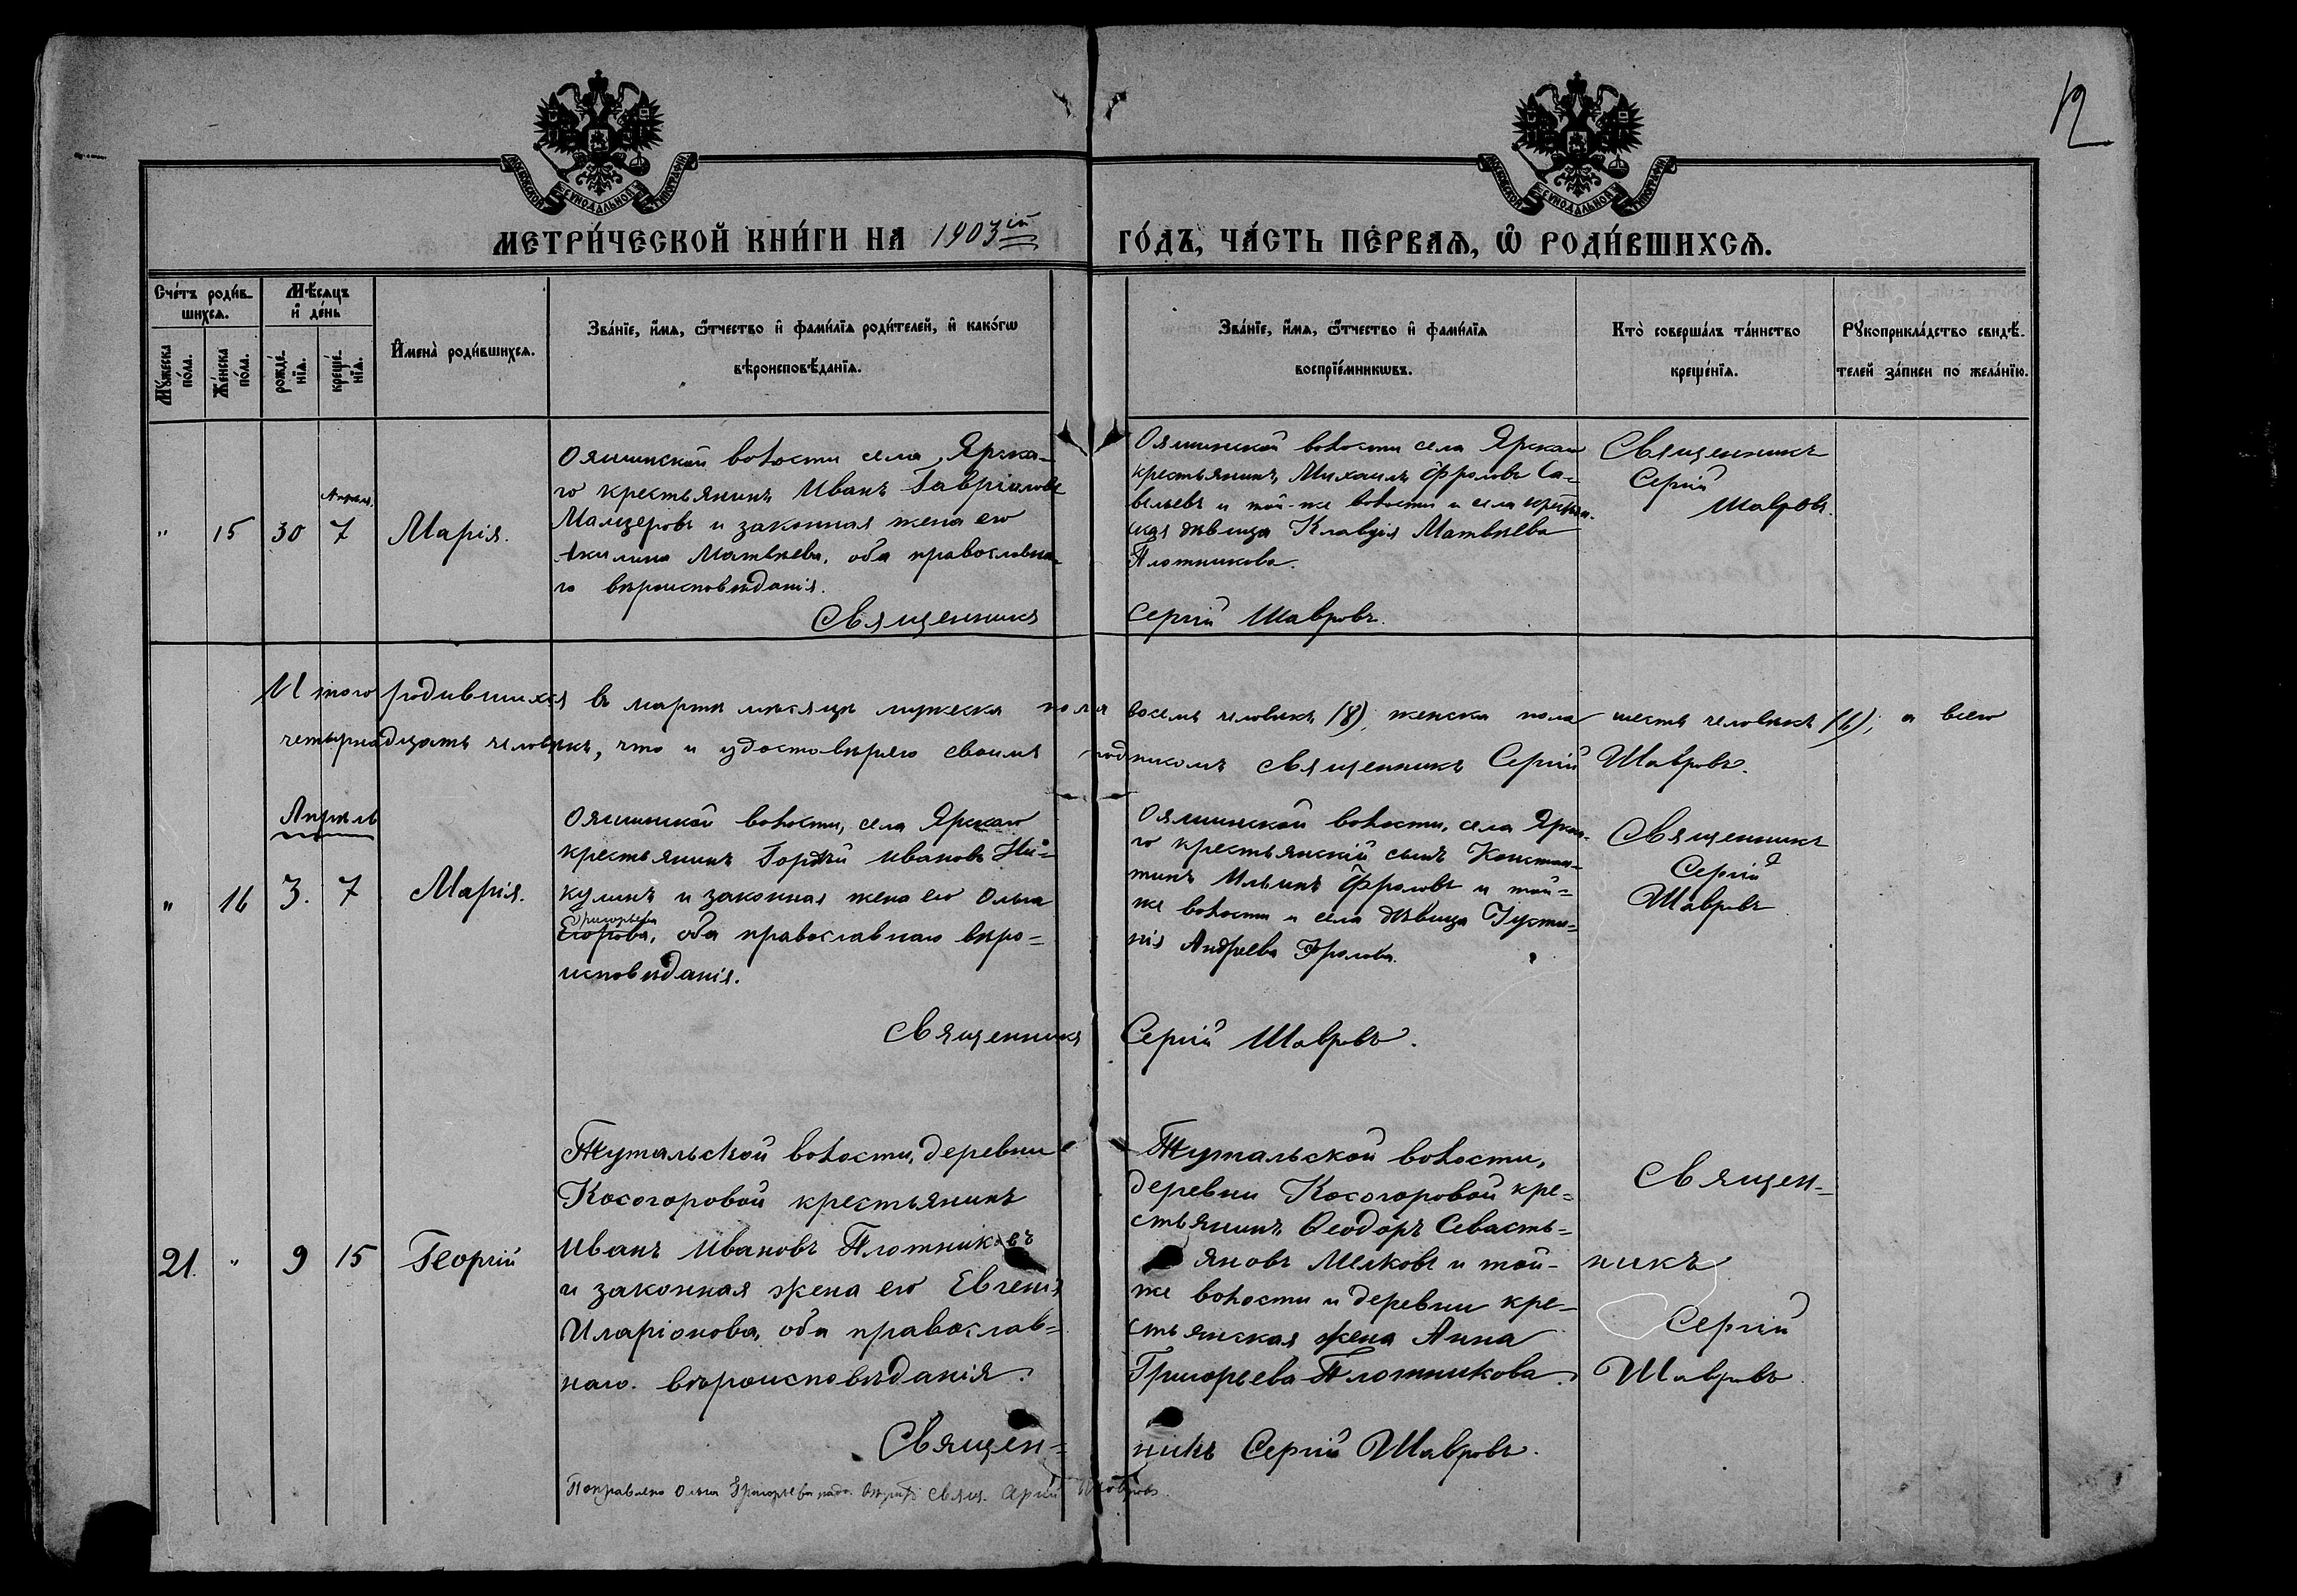 12
МОСКОВСКОЙ СУНОДАЛЬНОЙ ТИПОГРАФІИ
МОСКОВСКОЙ СУНОДАЛЬНОЙ ТИПОГРАФІИ
МЕТРИ́ЧЕСКОЙ КНИ́ГИ НА 1903ій ГО́ДЪ, ЧА́СТЬ ПЕ́РВАѦ, Ѡ҆ РОДИ́ВШИХСѦ.
Сче́тъ роди́в-
шихсѧ.
Мꙋ́жеска по́ла.
Же́нска по́ла.
Мѣ́сѧцъ
и҆ де́нь
рожде́-
нїѧ.
креще́-
нїѧ.
И҆мена̀ роди́вшихсѧ.
Зва́нїе, и҆́мѧ, ѻ҆́тчество и҆ фами́лїѧ роди́телей, и҆ како́гѡ
вѣроисповѣ́данїѧ.
Зва́нїе, и҆́мѧ, ѻ҆́тчество и҆ фами́лїѧ
воспрїе́мникѡвъ.
Кто̀ соверша́лъ та́инство
креще́нїѧ.
Рꙋкоприкла́дство свидѣ́-
телей за́писи по жела́нїю.
" 15 30 Апреля 7 Марія.
Ояшинской волости села Ярска-
го крестьянинъ Иванъ Гавріиловъ
Малцеровъ и законная жена его
Акилина Матвѣева, оба православна-
го вѣроисповѣданія.
Ояшинской волости села Ярскаго
крестьянинъ Михаилъ Фроловъ Са-
вельевъ и той-же волости и села крестьян-
ская дѣвица Клавдія Матвѣева
Плотникова.
Священникъ
Сергій
Шавровъ.
Священникъ Сергій Шавровъ.
Итого родившихся въ мартѣ мѣсяцѣ мужеска пола восемь человѣкъ (8), женска пола шесть человѣкъ (6), а всего
четырнадцать человѣкъ, что и удостовѣряю своимъ подписомъ Священникъ Сергій Шавровъ.
Апрѣль
" 16 3. 7 Марія.
Ояшинской волости, села Ярскаго
крестьянинъ Гордѣй Ивановъ Ни-
кулинъ и законная жена его Ольга
Григорьева
Егорова, оба православнаго вѣро=
исповѣданія.
Ояшинской волости, села Ярска-
го крестьянскій сынъ Констан-
тинъ Ильинъ Фроловъ и той=
же волости и села дѣвица Іусти-
нія Андреева Фролова.
Священникъ
Сергій
Шавровъ
Священникъ Сергій Шавровъ.
21. " 9 15 Георгій
Тутальской волости, деревни
Косогоровой крестьянинъ
Иванъ Ивановъ Плотниковъ
и законная жена его Евгенія
Иларіонова, оба православ=
наго вѣроисповѣданія.
Тутальской волости,
деревни Косогоровой кре=
стьянинъ Ѳеодоръ Севасть=
яновъ Мелковъ и той-
же волости и деревни кре-
стьянская жена Анна
Григорьева Плотникова.
Священ=
никъ
Сергій
Шавровъ
Священ=никъ Сергій Шавровъ.
Поправлено Ольга Григорьева надо вѣрить Свящ. Сергій Шавровъ.